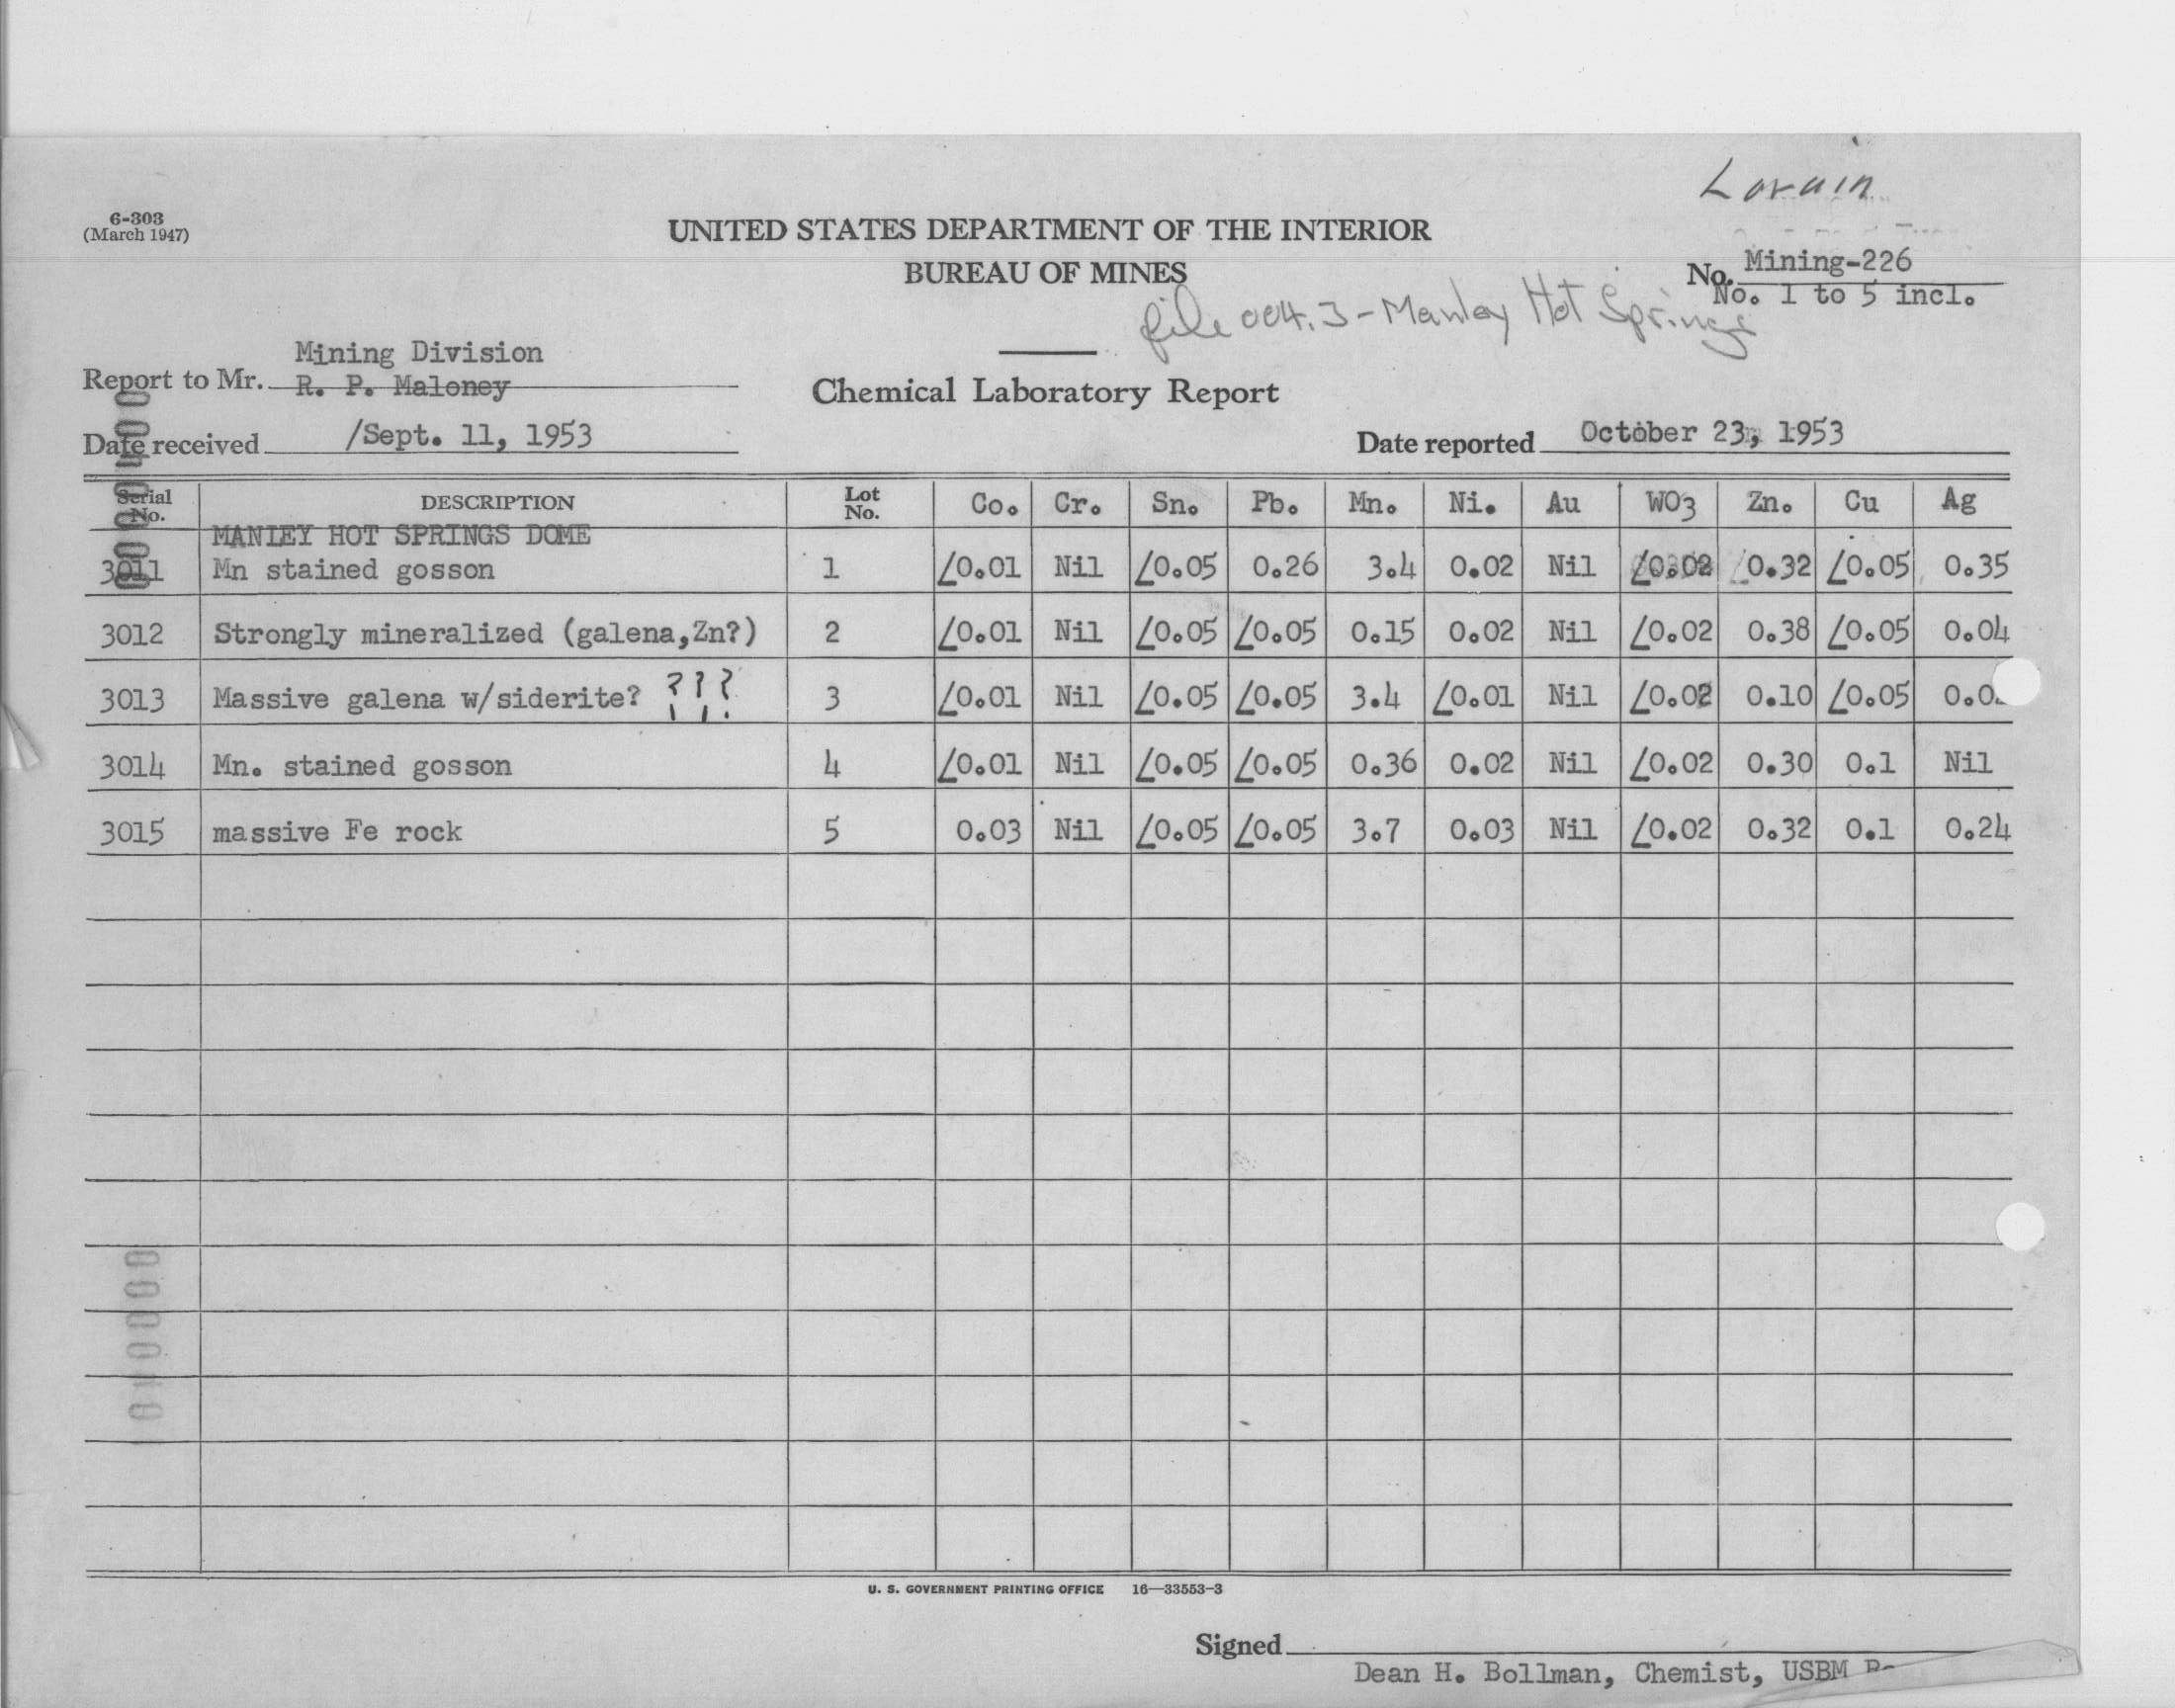 Lorain
6-303
(March 1947)
UNITED STATES DEPARTMENT OF THE INTERIOR
BUREAU OF MINES
No. Mining-226
No. 1 to 5 incl.
file 004.3 - Manley Hot Springs
Mining Division
Report to Mr. R. P. Maloney
Chemical Laboratory Report
Date received /Sept. 11, 1953
Date reported October 23, 1953
Serial No. DESCRIPTION Lot No. Co. Cr. Sn. Pb. Mn. Ni. Au WO3 Zn. Cu Ag
MANLEY HOT SPRINGS DOME
3011 Mn stained gosson 1 <0.01 Nil <0.05 0.26 3.4 0.02 Nil <0.02 0.32 <0.05 0.35
3012 Strongly mineralized (galena,Zn?) 2 <0.01 Nil <0.05 <0.05 0.15 0.02 Nil <0.02 0.38 <0.05 0.04
3013 Massive galena w/siderite? ??? !!! 3 <0.01 Nil <0.05 <0.05 3.4 <0.01 Nil <0.02 0.10 <0.05
3014 Mn. stained gosson 4 <0.01 Nil <0.05 <0.05 0.36 0.02 Nil <0.02 0.30 0.1 Nil
3015 massive Fe rock 5 0.03 Nil <0.05 <0.05 3.7 0.03 Nil <0.02 0.32 0.1 0.24
U. S. GOVERNMENT PRINTING OFFICE 16—33553-3
Signed
Dean H. Bollman, Chemist, USBM